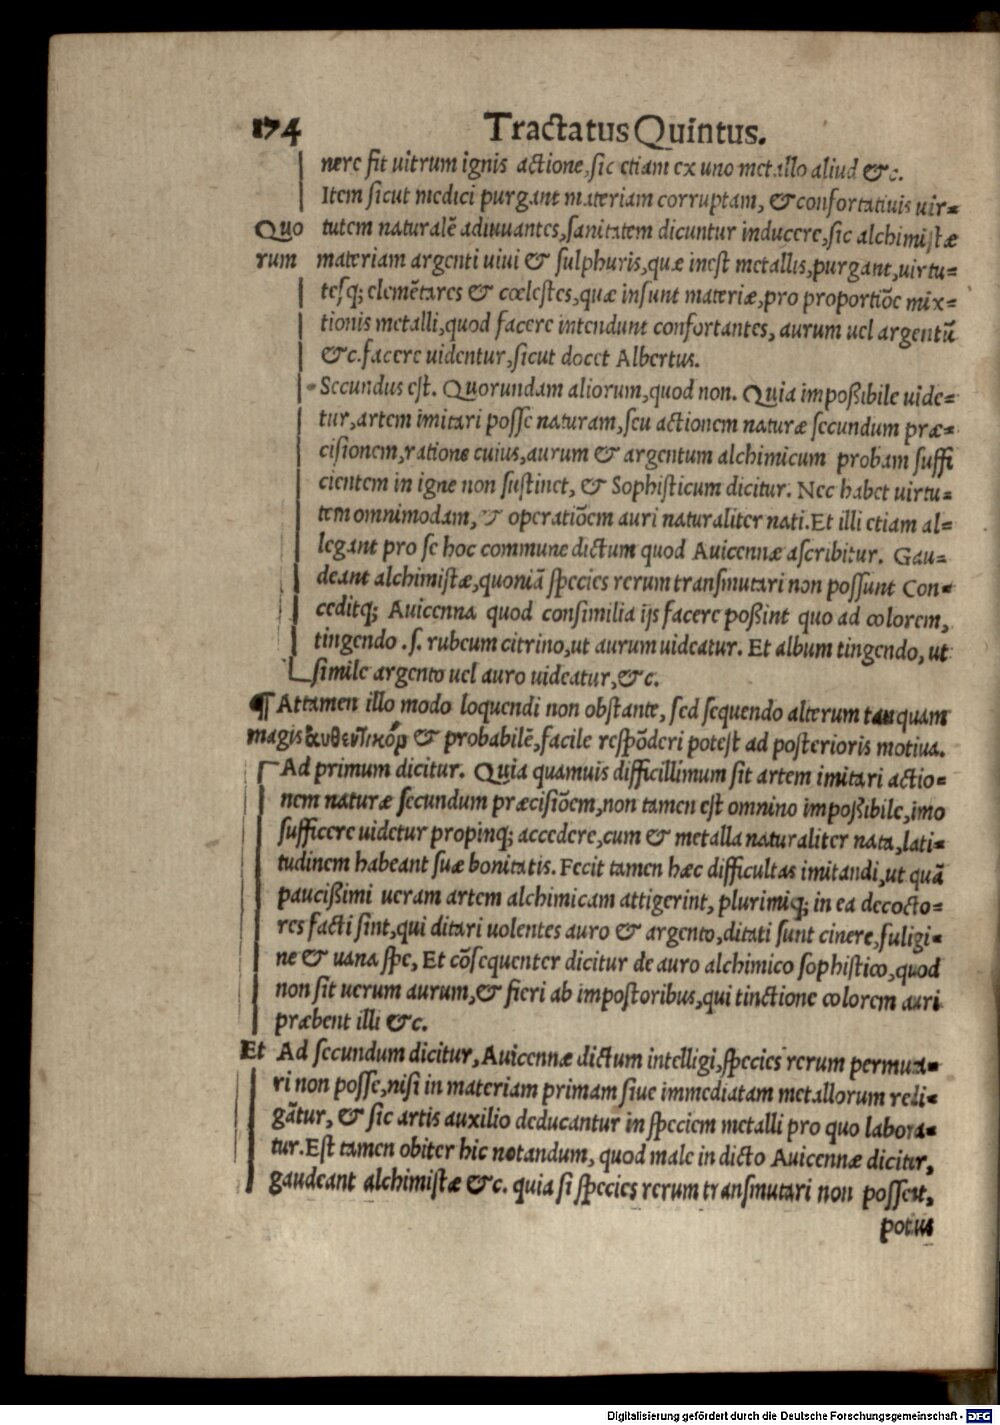 174 Tractatus Quintus.
nere fit uitrum ignis actione, sic etiam ex uno metallo aliud &c.
Item sicut medici purgant materiam corruptam, & confortatiuis uir=
Quo tutem naturalē adiuuantes, sanitatem dicuntur inducere, sic alchimistæ
rum materiam argenti uiui & sulphuris, quæ inest metallis, purgant, uirtu=
tesq; elemētares & cœlestes, quæ insunt materiæ, pro proportiōe mix=
tionis metalli, quod facere intendunt confortantes, aurum uel argentū
&c. facere uidentur, sicut docet Albertus.
Secundus est. Quorundam aliorum, quod non. Quia impoßibile uide=
tur, artem imitari posse naturam, seu actionem naturæ secundum præ=
cisionem, ratione cuius, aurum & argentum alchimicum probam suffi
cientem in igne non sustinet, & Sophisticum dicitur. Nec habet uirtu=
tem omnimodam, & operatiōem auri naturaliter nati. Et illi etiam al=
legant pro se hoc commune dictum quod Auicennæ ascribitur. Gau=
deant alchimistæ, quoniā species rerum transmutari non possunt Con=
ceditq; Auicenna quod consimilia ijs facere poßint quo ad colorem,
tingendo .s. rubeum citrino, ut aurum uideatur. Et album tingendo, ut
simile argento uel auro uideatur, &c.
¶ Attamen illo modo loquendi non obstante, sed sequendo alterum tanquam
magis αυθεντικόρ & probabilē, facile respōderi potest ad posterioris motiua.
Ad primum dicitur. Quia quamuis difficillimum sit artem imitari actio=
nem naturæ secundum præcisiōem, non tamen est omnino impoßibile, imo
sufficere uidetur propinq; accedere, cum & metalla naturaliter nata, lati=
tudinem habeant suæ bonitatis. Fecit tamen hæc difficultas imitandi, ut quā
paucißimi ueram artem alchimicam attigerint, plurimiq; in ea decocto=
res facti sint, qui ditari uolentes auro & argento, ditati sunt cinere, fuligi=
ne & uana spe, Et cōsequenter dicitur de auro alchimico sophistico, quod
non sit uerum aurum, & fieri ab impostoribus, qui tinctione colorem auri
præbent illi &c.
Et Ad secundum dicitur, Auicennæ dictum intelligi, species rerum permuta=
ri non posse, nisi in materiam primam siue immediatam metallorum redi=
gātur, & sic artis auxilio deducantur in speciem metalli pro quo labora=
tur. Est tamen obiter hic notandum, quod male in dicto Auicennæ dicitur,
gaudeant alchimistæ &c. quia si species rerum transmutari non possent,
potius
Digitalisierung gefördert durch die Deutsche Forschungsgemeinschaft - DFG